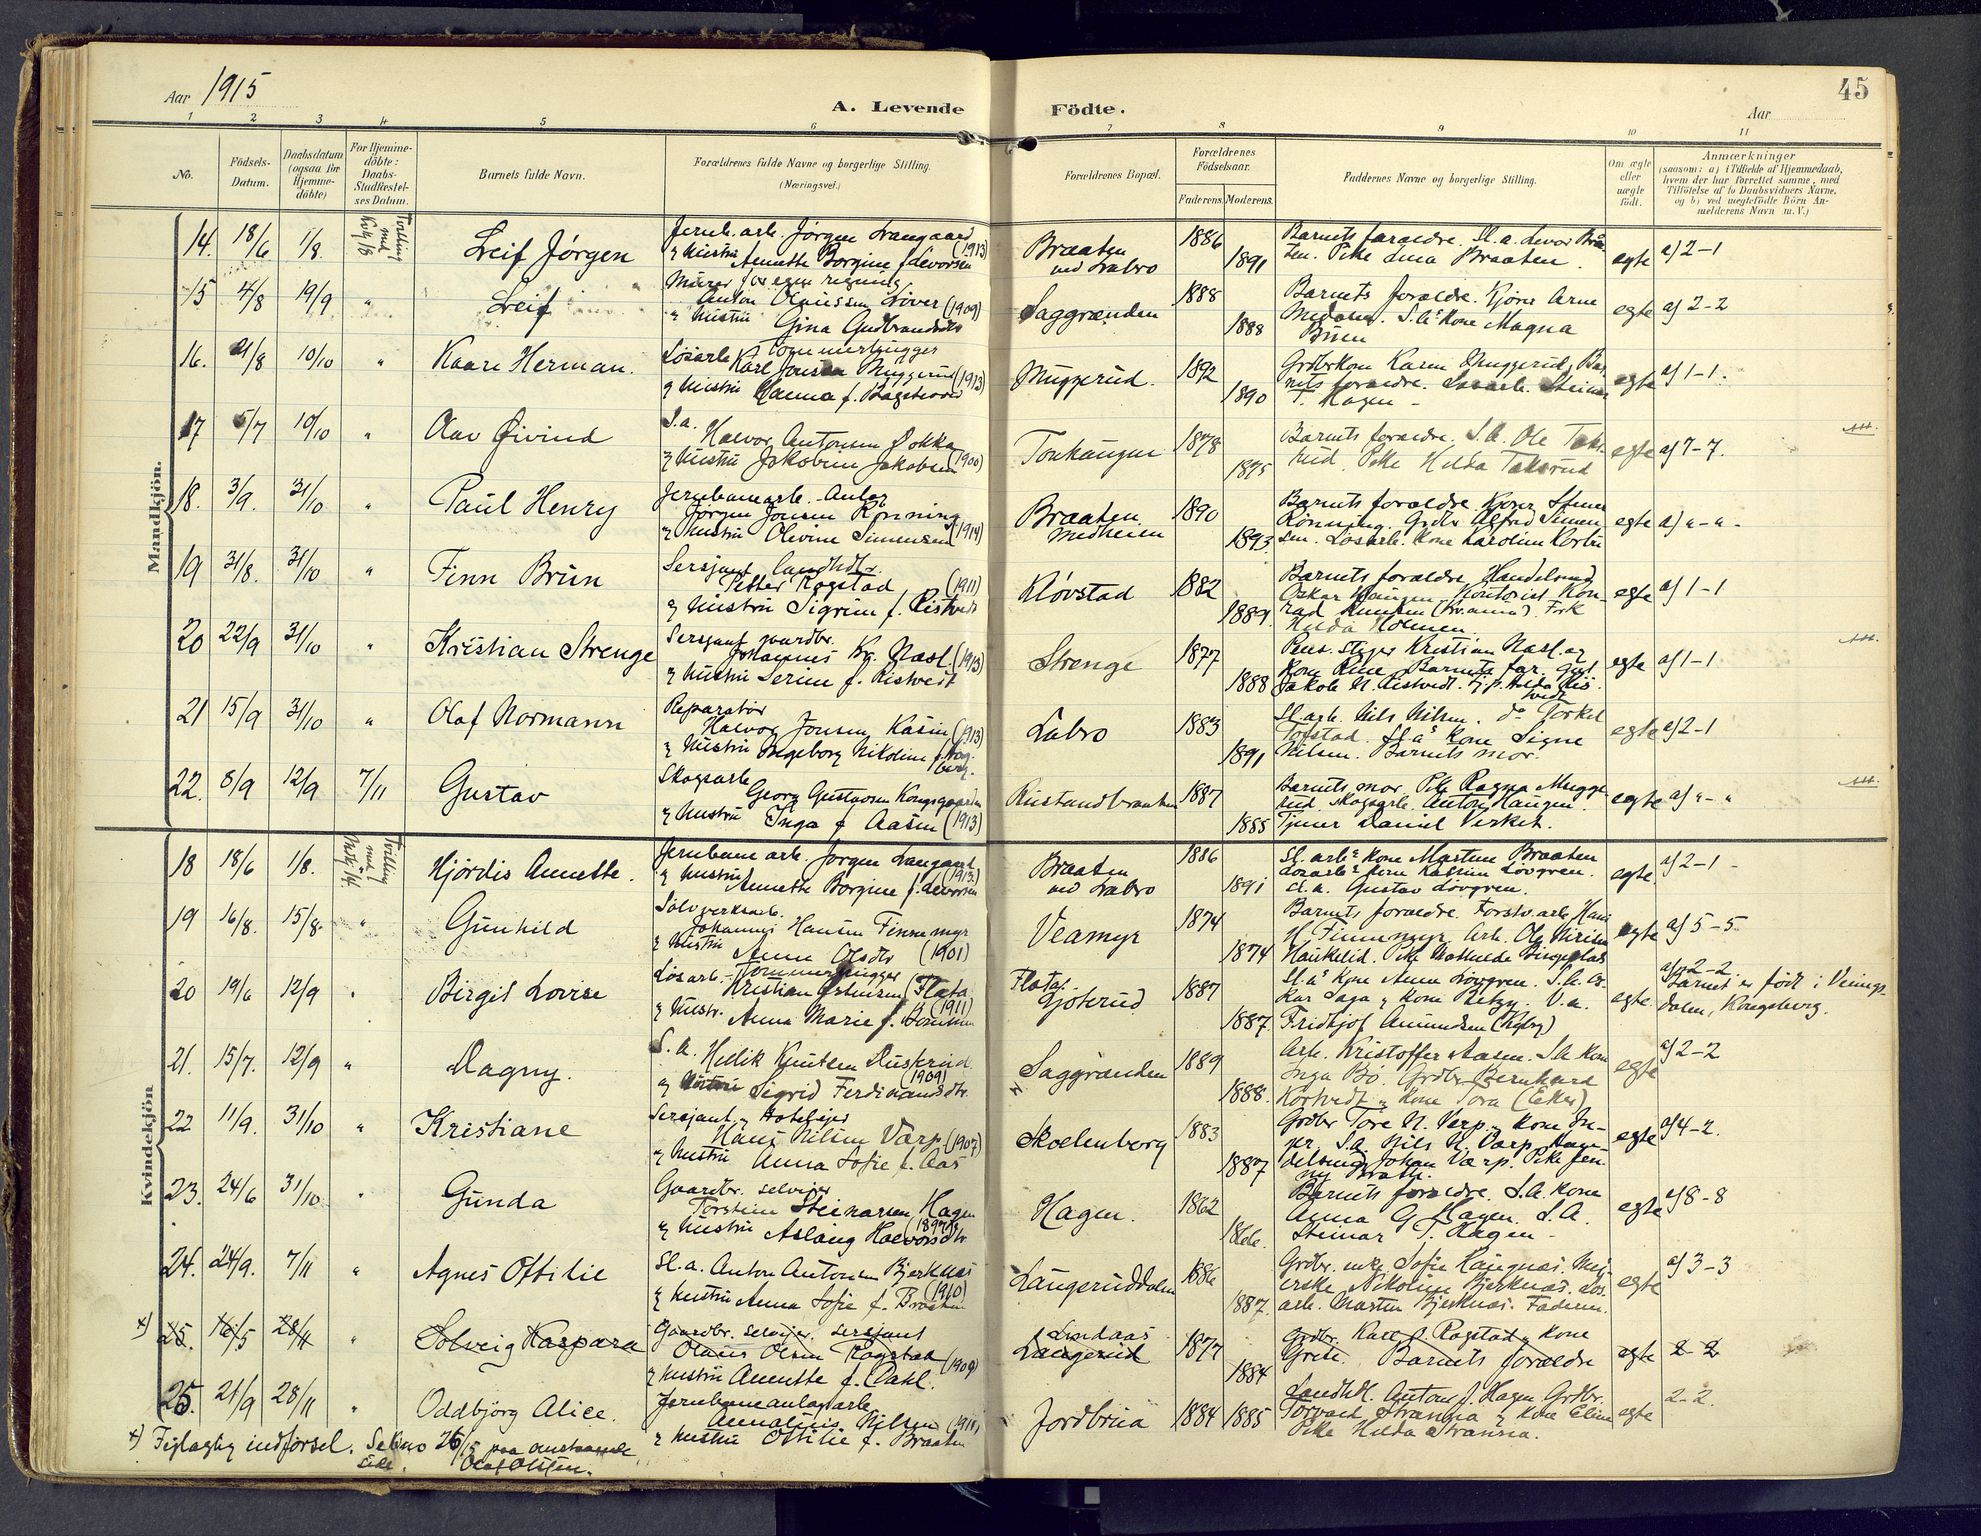 Aar 1915
A. Levende Födte.
Aar
45
1 2 3 4 5 6 7 8 9 10 11
No.
Födsels-
Datum.
Daabsdatum
(ogsaa for
Hjemme-
döbte)
For Hjemme-
döbte:
Daabs-
Stadfæstel-
ses Datum.
Barnets fulde Navn.
Forældrenes fulde Navne og borgerlige Stilling.
(Næringsvei.)
Forældrenes Bopæl.
Forældrenes
Födselsaar.
Faderens. Moderens.
Faddernes Navne og borgerlige Stilling.
Om ægte
eller
uægte
født.
Anmærkninger
(saasom: a) i Tilfælde af Hjemmedaab,
hvem der har forrettet samme, med
Tilföielse af to Daabsvidners Navne,
og b) ved uægtefödte Börn An-
melderens Navn m. V.)
Mandkjön.
14. 18/6 1/8. Tvilling med
Leif Jørgen
Jernb. arb. Jørgen Langaard (1913)
hustru Annette Borgine f. Levorsen
Braaten
ved Labro
1886 1891
Barnets foraeldre. Sl.a. Levor Braa-
ten. Pike Lina Braaten.
egte a) 2-1
15 4/8 19/9 "
Leif
Murer for egen regning,
Anton Olaussen Løver (1909)
hustru Gina Gudbrandsdtr
Saggrænden
1888 1888
Barnets foraeldre. Kjører Arne
S.a's kone Magna
egte a) 2-2
16. 21/8 10/10 "
Kaare Herman.
Løsarb. Tømmerhugger
Karl Jonsen Muggerud (1913)
hustru Hanna f. Bagstevold
Muggerud.
1892 1890
Grdbrkone Karen Muggerud, Bar-
nets foraeldre. Løsarb. Steinar
T. Hagen -
egte a) 1-1.
17 5/7 10/10 "
Olav Øivind
S.a.
Halvor Antonsen Dokka
hustru Jakobine Jakobsen (1900)
Tonhaugen
1878 1875
Barnets foraeldre. S.a. Ole Taks-
rud. Pike Hilda Taksrud
egte a) 7-7.
Att.
18. 3/9. 31/10 "
Paul Henry
Jernbanearb. Anlæg
Jørgen Jonsen Rønning
hustru Olevine Simensen (1914)
Braaten
Medheien
1890 1893.
Barnets foraeldre. Kjører Stener
Rønning. Grdbr Alfred Simen-
sen. Løsarb. kone Karoline Kortn
egte a) " - " -
19 31/8. 31/10 "
Finn Brun
Sersjant, landhdlr.
Petter Rogstad (1911)
hustru Sigrun f. Ristvedt
Kløvstad
1882 1889.
Barnets foraeldre, Handelsmd
Oskar Haugen. Kontorist Kon-
rad Knutsen (Kvarnas). Frk
Hilda Holmen.
egte a) 1-1
20 22/9 31/10 "
Kristian Strenge
Sersjant, gaardbr.
Johannes Kr. Nasl. (1913)
hustru Serine f. Ristvedt
Strenge
1877 1888
Pens. stiger Kristian Nasl. og
kone Rine. Barnets far. Grdbr
Jakob N. Ristvedt. Hilda Ris-
tvedt
egte a) 1-1
Att.
21 15/9 31/10 "
Olaf Normann
Reparatør
Halvor Jonsen Kasin (1913)
hustru Ingeborg Nikoline f. Haug-
berg.
Labro
1883 1891
Sl. arb. Nils Nilsen. do Torkel
Tofstad. Sl.a's kone Signe
Nilsen. Barnets mor.
egte a) 2-1
22. 8/9 12/9 7/11
Gustav
Skogsarb.
Georg Gustavsen Kongsgaarden
hustru Inga f. Aasen (1913)
Rustandbraaten
1887 1885
Barnets mor, Pike Ragna Mugge-
rud, skogsarb. Anton Haugen.
Tjener Daniel Virket.
egte a) " - "
Att.
Kvindekjön
18 18/6 1/8. Tvilling med
Hjördis Annette.
Jernbanearb. Jørgen Langaard (1913.)
hustru Annette Borgine f. Levorsen
Braaten
ved Labro
1886 1891
Sl. arb's kone Martine Braaten
Løsarb's kone Katrine Løvgren.
Sl.a. Gustav Løvgren.
egte. a) 2-1-
19 16/8. 15/8. "
Gunhild
Sølvverksarb.
Johannes Hansen Finnemyr
hustru Anne Olsdtr (1901)
Veamyr
1874 1874
Barnets foraeldre. Forstv. arb. Hans
H. Finnemyr. Arb. Ole
Haukelid. Pike Mathilde
egte a) 5-5
20 19/6 12/9 "
Birgit Lovise
Løsarb. - Tømmerhugger
Kristian Østensen (Flata
hustr. Anna Marie f. (1911)
Flata,
Gjøterud
1887 1887.
Sl. a's kone Anne Løvgren. S.a. Os-
kar Saga & kone Betzy. U.a.
Fridtjof Amundsen (Kgbrg)
egte. a) 2-2.
Barnet er født i Venings-
dalen, Kongsberg.
21. 15/7. 12/9 "
Dagny.
S.a. Hellik Knutsen Dusterud
hustru Sigrid Ferdinandsdtr. (1909)
Saggrænden
1889 1888.
Arb. Kristoffer Aasen. S.a. kone
Inga Bø. Grdbr. Bernhard
Kortvedt " kone Tora (Eker)
egte a) 2-2
22 11/9. 31/10 "
Kristiane
Sersjant, Hoteleier
Hans Nilsen Værp (1907)
hustru Anna Sofie f. Aas
Skoelenborg
1883 1887
Grdbr Tore N. Værp " kone In-
ger. S.a. Nils N. Værp,
Johan Værp. Pike Jen-
ny
egte a) 4-2.
23. 24/6 31/10. "
Gunda
Gaardbr. selveier
Torstein Steinarsen Hagen
hustru Aslaug Halvorsdtr (1897)
Hagen.
1862
Barnets foraeldre. S.a. kone
Anna G. Hagen. S.a.
Steinar T. Hagen -
egte a) 8-8
24. 24/9. 7/11 "
Agnes Ottilie
Sl.a. Anton Antonsen Bjerknas
hustru Anna Sofie f. Braaten (1910)
Langeruddalen
1886 1887.
Grdbr. enke Sofie Haugnas. Mei-
erske Nikoline Bjerknas. Løs-
arb. Martin Bjerknas. Faderen.
egte a) 3-3
x) 25. 16/5 28/11 "
Solveig Kaspara
Gaardbr. selveier. sersjant
Olaus Olsen Rogstad (1909)
hustru Annette f. Dahl.
Lindaas
Langerud
1877 1884
Grdbr. Kare O. Rogstad " kone
Grete. Barnets foraeldre
egte 2-2
25. 21/9 28/11 "
Oddbjörg Alice.
Jernbaneanlægsarb.
Annanius Nilsen (1911)
hustru Ottilie f. Braaten
Jordbrua
1884 1885
Landhdl. Anton J. Hagen. Grdbr.
Torvald Stranna & kone Eline
Pike Hilda Stranna.
egte 2-2.
x) Feilagtig indførsel. Se No 26/15 paa omstaaende
side. Olaf Olssen.